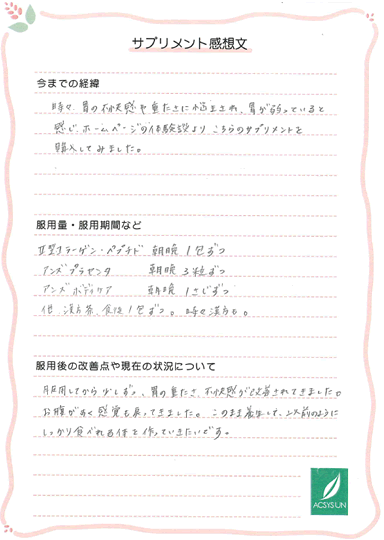 サプリメント感想文
今までの経緯
時々、胃の不快感や重たさに悩まされ、胃が弱っていると
感じ、ホームページの体験談より こちらのサプリメントを
購入してみました。
服用量・服用期間など
Ⅱ型コラーゲン・ペプチド 朝晩 1包ずつ
アンズプラセンタ 朝晩 3粒ずつ
アンズボディケア 朝晩 1さじずつ
他 漢方茶 食後1包ずつ。時々漢方も。
服用後の改善点や現在の状況について
服用してから少しずつ、胃の重たさ、不快感が改善されてきました。
お腹がすく感覚も戻ってきました。このまま養生して、以前のように
しっかり食べれる体を作っていきたいです。
ACSYSUN